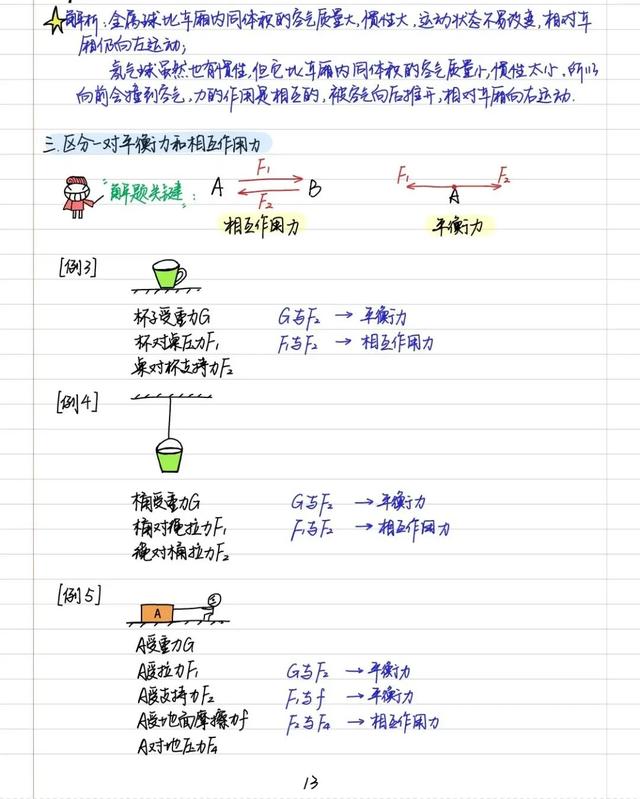 解析:金属球比车厢内同体积的空气质量大,惯性大,运动状态不易改变,相对车
厢仍向左运动;
氢气球虽然也有惯性,但它比车厢内同体积的空气质量小,惯性太小,所以
向前会撞到空气,力的作用是相互的,被空气向后推开,相对车厢向右运动.
三.区分一对平衡力和相互作用力
"解题关键": A F₁ F₂ B F₁ A F₂
相互作用力 平衡力
[例3]
杯子受重力G G与F₂ → 平衡力
杯对桌压力F₁ F₁与F₂ → 相互作用力
桌对杯支持力F₂
[例4]
桶受重力G G与F₂ → 平衡力
桶对绳拉力F₁ F₁与F₂ → 相互作用力
绳对桶拉力F₂
[例5]
A
A受重力G
A受拉力F₁ G与F₂ → 平衡力
A受支持力F₂ F₁与f → 平衡力
A受地面摩擦力f F₂与F₄ → 相互作用力
A对地压力F₄
13